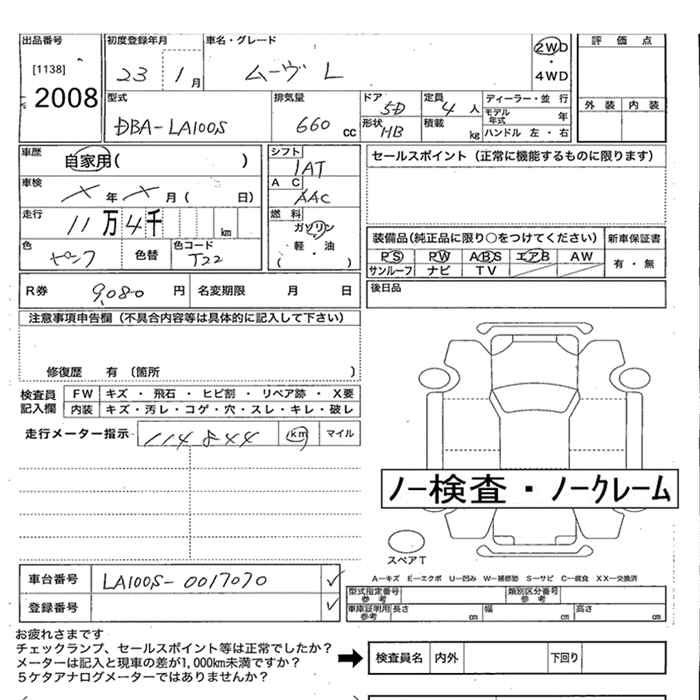 出品番号 初度登録年月 車名・グレード 2WD ・ 4WD 評価点
[1138] 23 1月 ムーヴ L
2008 外装 内装
型式 排気量 ドア 5D 定員 4人 ディーラー・並行
DBA-LA100S 660cc 形状 HB 積載 kg モデル年式 年
ハンドル 左・右
車歴 自家用( ) シフト 1AT セールスポイント(正常に機能するものに限ります)
車検 X年 X月( 日) AC AAC
走行 11万4千 km 燃料 ガソリン 軽・油 ( )
色 ピンク 色替 色コード T22
装備品(純正品に限り○をつけてください) 新車保証書
PS PW ABS エアB AW 有・無
サンルーフ ナビ TV
R券 9,080円 名変期限 月 日 後日品
注意事項申告欄(不具合内容等は具体的に記入して下さい)
修復歴 有(箇所 )
検査員記入欄 FW キズ・飛石・ヒビ割・リペア跡・X要
内装 キズ・汚レ・コゲ・穴・スレ・キレ・破レ
走行メーター指示 114844 km マイル
ノー検査・ノークレーム
スペアT
A−キズ E−エクボ U−凹み W−補修跡 S−サビ C−腐食 XX−交換済
車台番号 LA100S-0017070 ✓
登録番号 ✓
型式指定番号 参考 類別区分番号 参考
車庫証明用 参考 長さ cm 幅 cm 高さ cm
お疲れさまです
チェックランプ、セールスポイント等は正常でしたか?
メーターは記入と現車の差が1,000km未満ですか?
5ケタアナログメーターではありませんか?
検査員名 内外 下回り